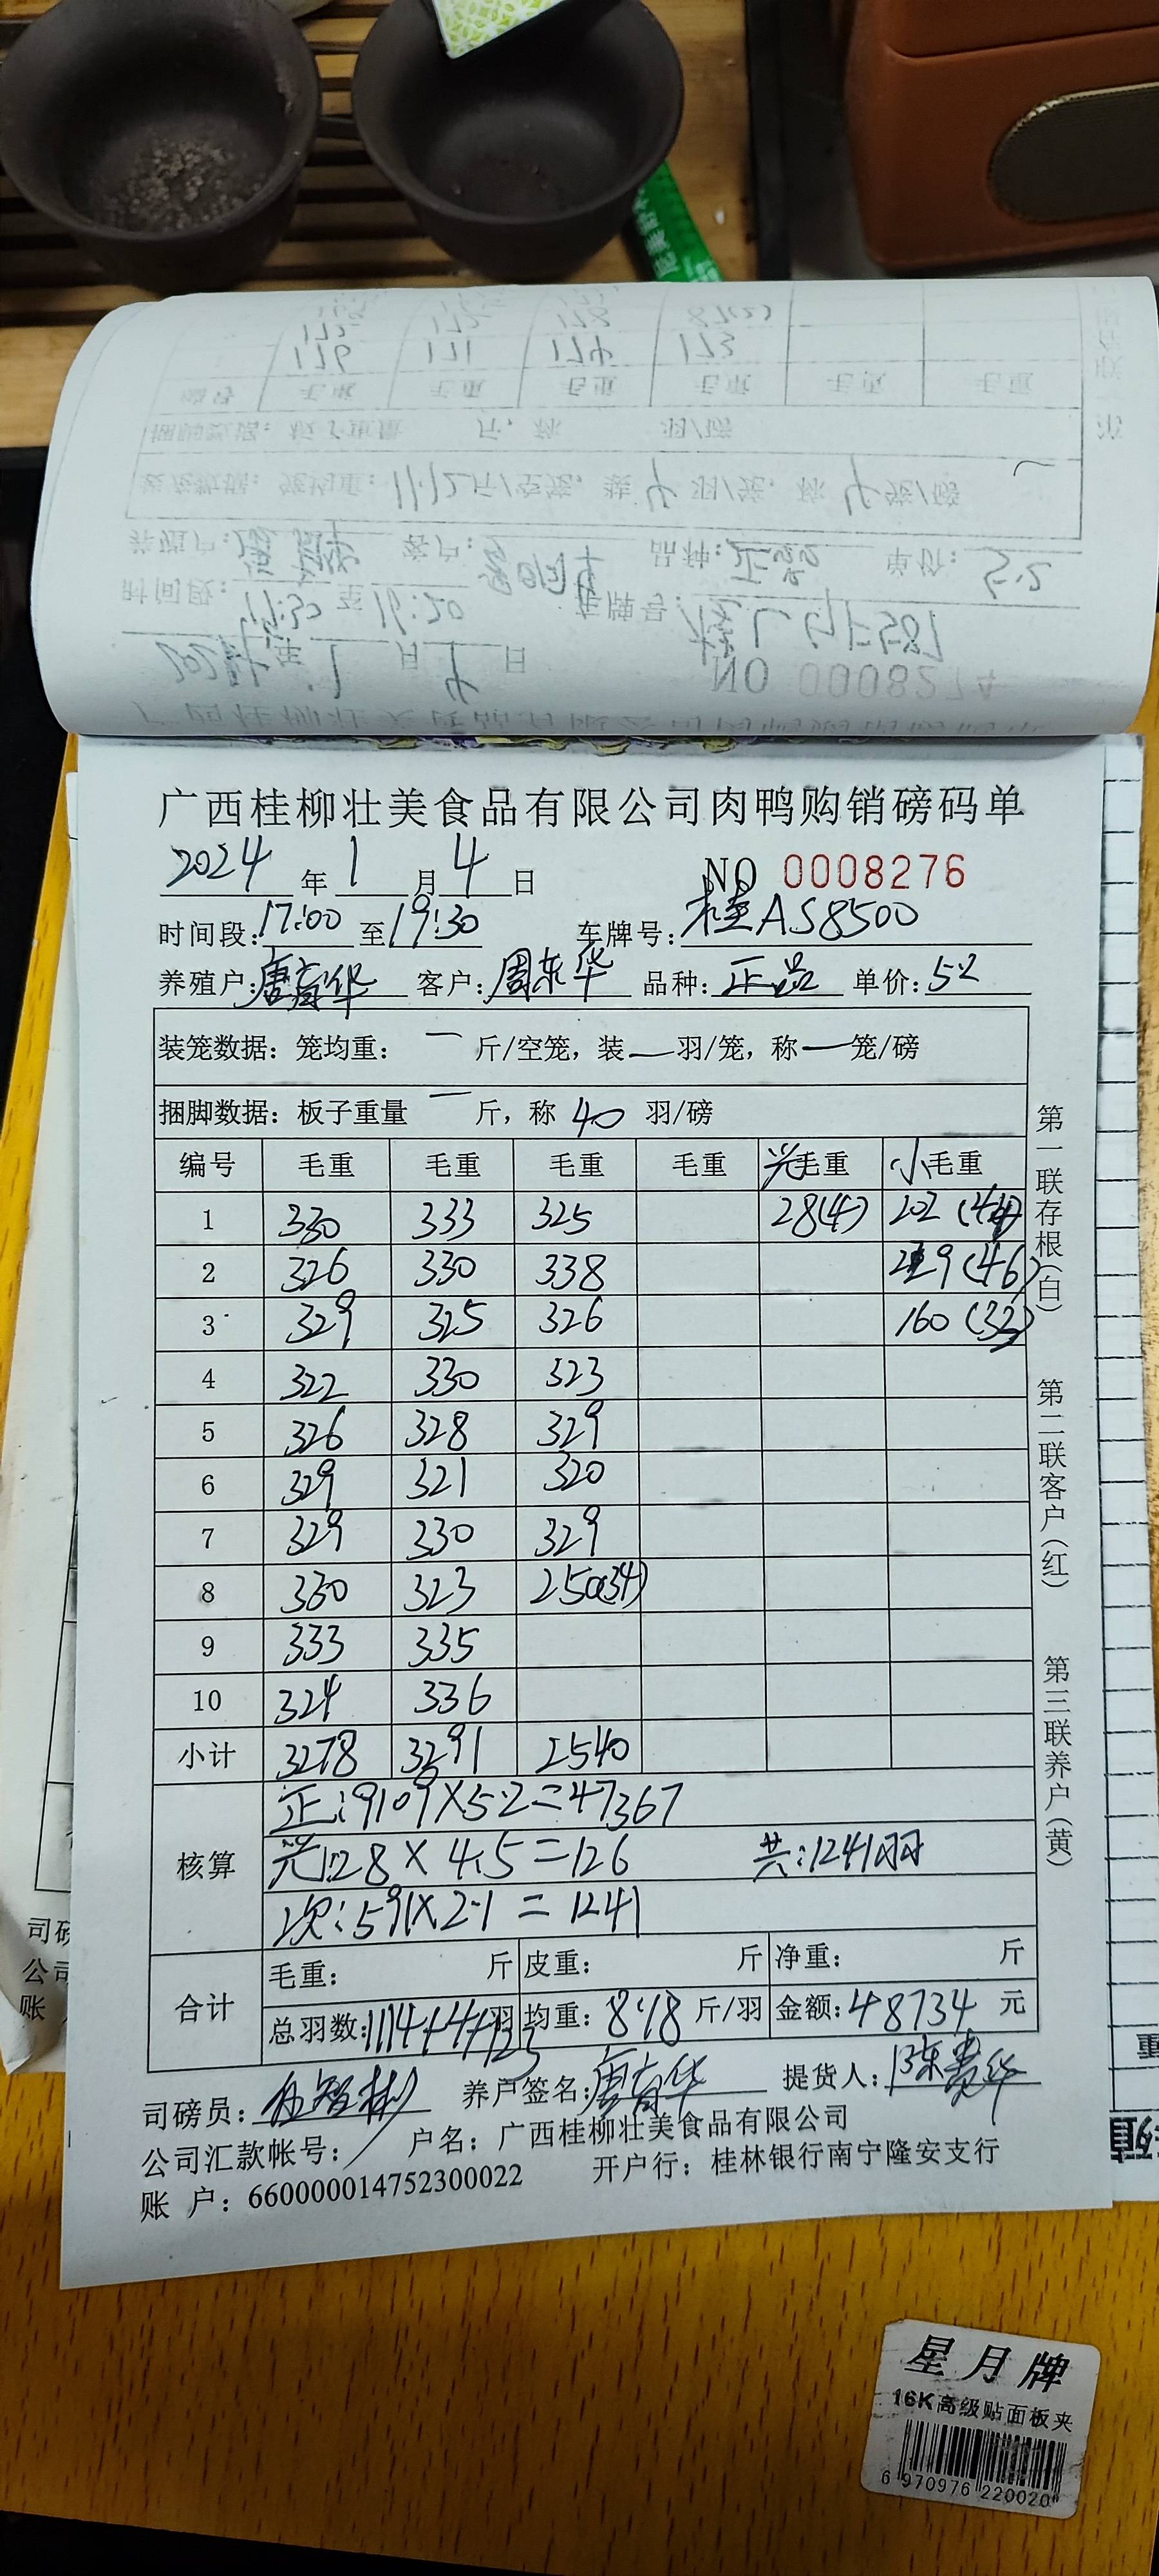 广西桂柳壮美食品有限公司肉鸭购销磅码单
2024 年 1 月 4 日 NO 0008276
时间段: 17:00 至 19:30 车牌号: 桂AS8500
养殖户: 唐育华 客户: 周东华 品种: 正品 单价: 5.2
装笼数据: 笼均重: — 斤/空笼, 装 — 羽/笼, 称 — 笼/磅
捆脚数据: 板子重量 — 斤, 称 40 羽/磅
编号 毛重 毛重 毛重 毛重 毛重 小毛重
1 330 333 325 28(4) 202 (44)
2 326 330 338 229 (46)
3 329 325 326 160 (33)
4 322 330 323
5 326 328 329
6 329 321 320
7 329 330 329
8 330 323 250(34)
9 333 335
10 324 336
小计 3278 3291 2540
核算
正: 9109×5.2=47367
28×4.5=126 共: 1241羽
次: 591×2.1=1241
合计
毛重: 斤 皮重: 斤 净重: 斤
总羽数: 1114+4+123 羽 均重: 8.18 斤/羽 金额: 48734 元
司磅员: 养户签名: 唐育华 提货人: 陈贵华
公司汇款帐号: 户名: 广西桂柳壮美食品有限公司
账 户: 660000014752300022 开户行: 桂林银行南宁隆安支行
第一联存根(白)
第二联客户(红)
第三联养户(黄)
NO 0008274
司磅
公司
账
星月牌
16K高级贴面板夹
6 970976 220020